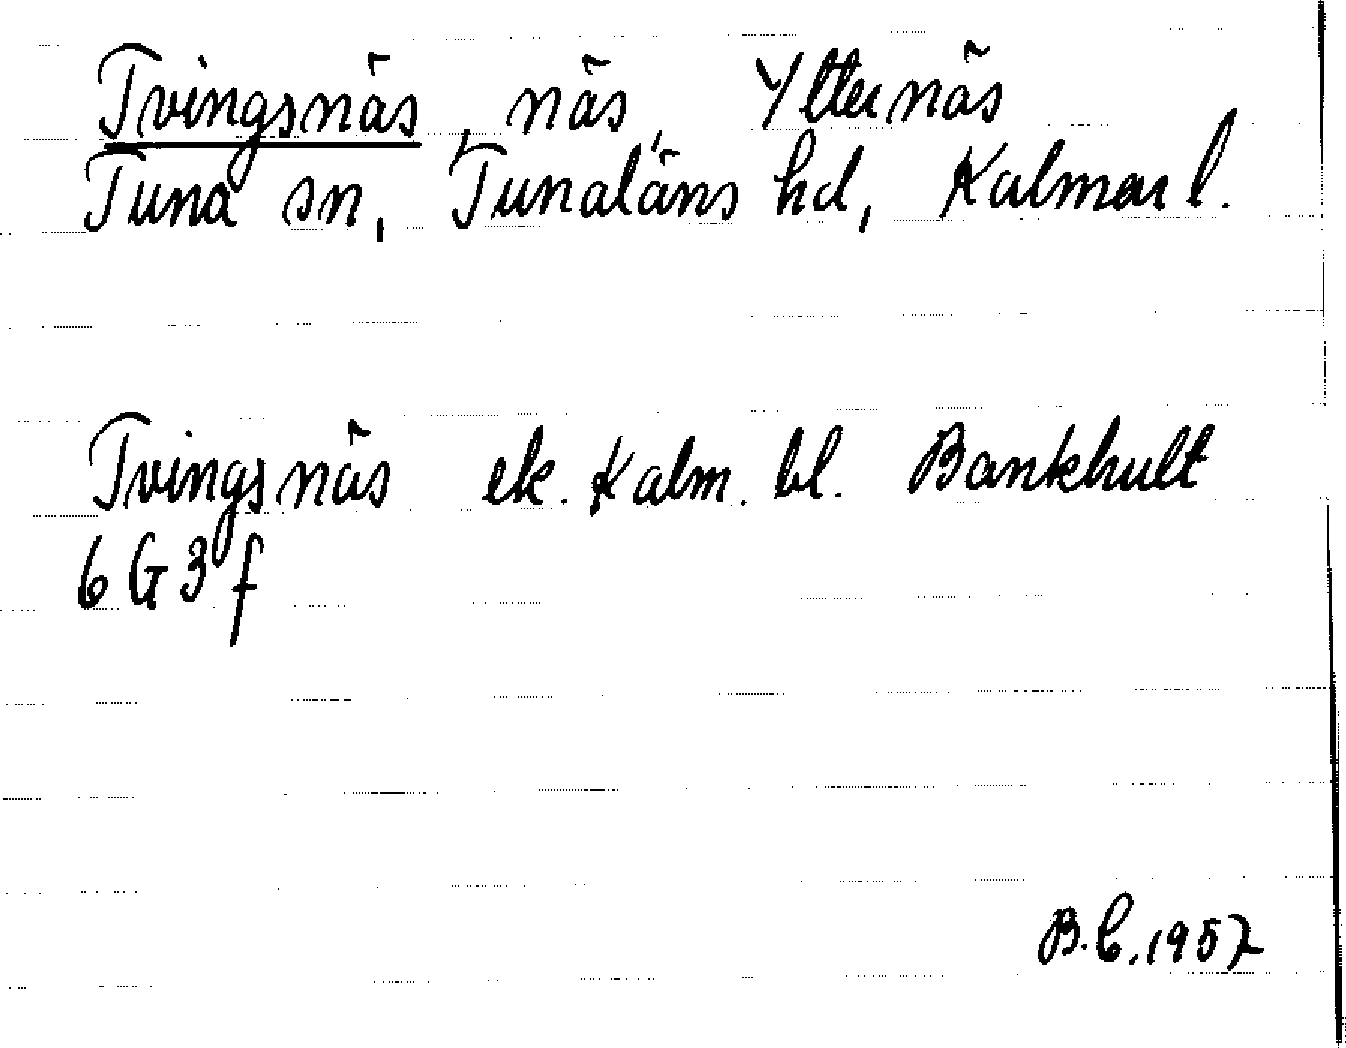 Tvingsnäs, näs, Ytternäs
Tuna sn, Tunaläns hd, Kalmar l.
Tvingsnäs ek. Kalm. bl. Bankhult
6 G 3 f
B.C. 1957